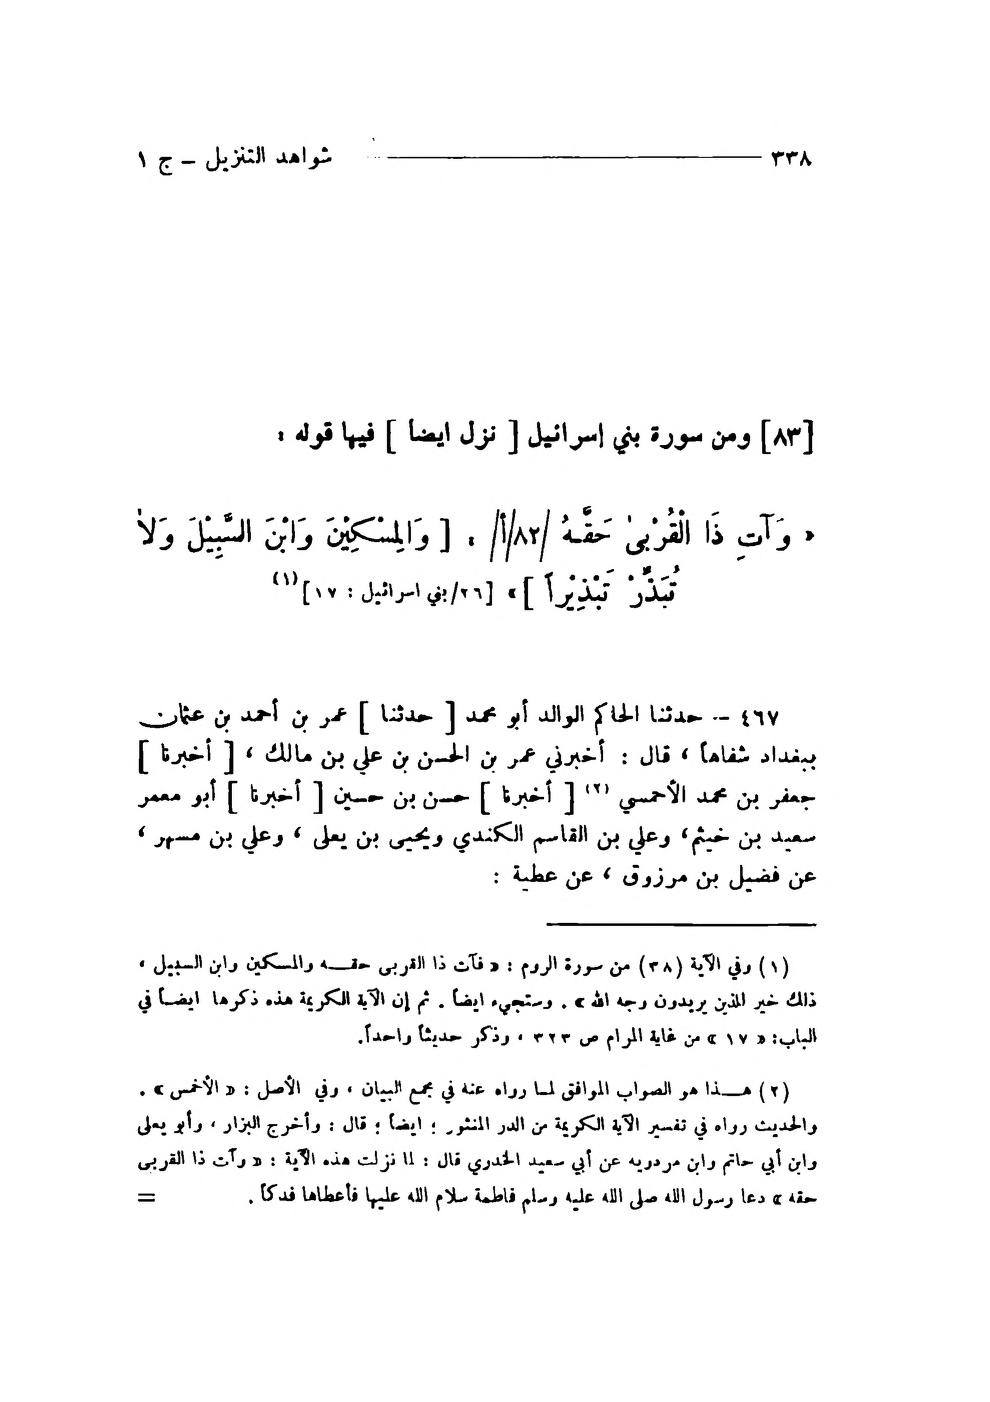 ٣٣٨ شواهد التنزيل ــ ج ١
[٨٣] ومن سورة بني إسرائيل [ نزل ايضاً ] فيها قوله :
« وَآتِ ذَا الْقُرْبىٰ حَقَّـهُ /٨٢/أ/ ، [ وَالمِسْكِيْنَ وَابْنَ السَّبِيْلَ وَلاٰ
تُبَذِّرْ تَبْذِيْراً ]» [٢٦/بني اسرائيل : ١٧](١)
٤٦٧ ـ حدثنا الحاكم الوالد أبو محمد [ حدثنا ] عمر بن أحمد بن عثمان
ببغداد شفاهاً ، قال : أخبرني عمر بن الحسن بن علي بن مالك ، [ أخبرنا ]
جعفر بن محمد الأحمسي (٢) [ أخبرنا ] حسن بن حسين [ أخبرنا ] أبو معمر
سعيد بن خيثم، وعلي بن القاسم الكندي ويحيى بن يعلى ، وعلي بن مسهر ،
عن فضيل بن مرزوق ، عن عطية :
(١) وفي الآية (٣٨) من سورة الروم : « فآت ذا القربى حقـــه والمسكين وابن السبيل ،
ذلك خير للذين يريدون وجه الله » . وستجيء ايضاً . ثم إن الآية الكريمة هذه ذكرها ايضاً في
الباب: « ١٧ » من غاية المرام ص ٣٢٣ ، وذكر حديثاً واحداً.
(٢) هـــذا هو الصواب الموافق لمـا رواه عنه في مجمع البيان ، وفي الأصل : « الأخمس » .
والحديث رواه في تفسير الآية الكريمة من الدر المنثور ؛ ايضاً ؛ قال : وأخرج البزار ، وأبو يعلى
وابن أبي حاتم وابن مردويه عن أبي سعيد الخدري قال : لما نزلت هذه الآية : « وآت ذا القربى
حقه » دعا رسول الله صلى الله عليه وسلم فاطمة سلام الله عليها فأعطاها فدكاً . =